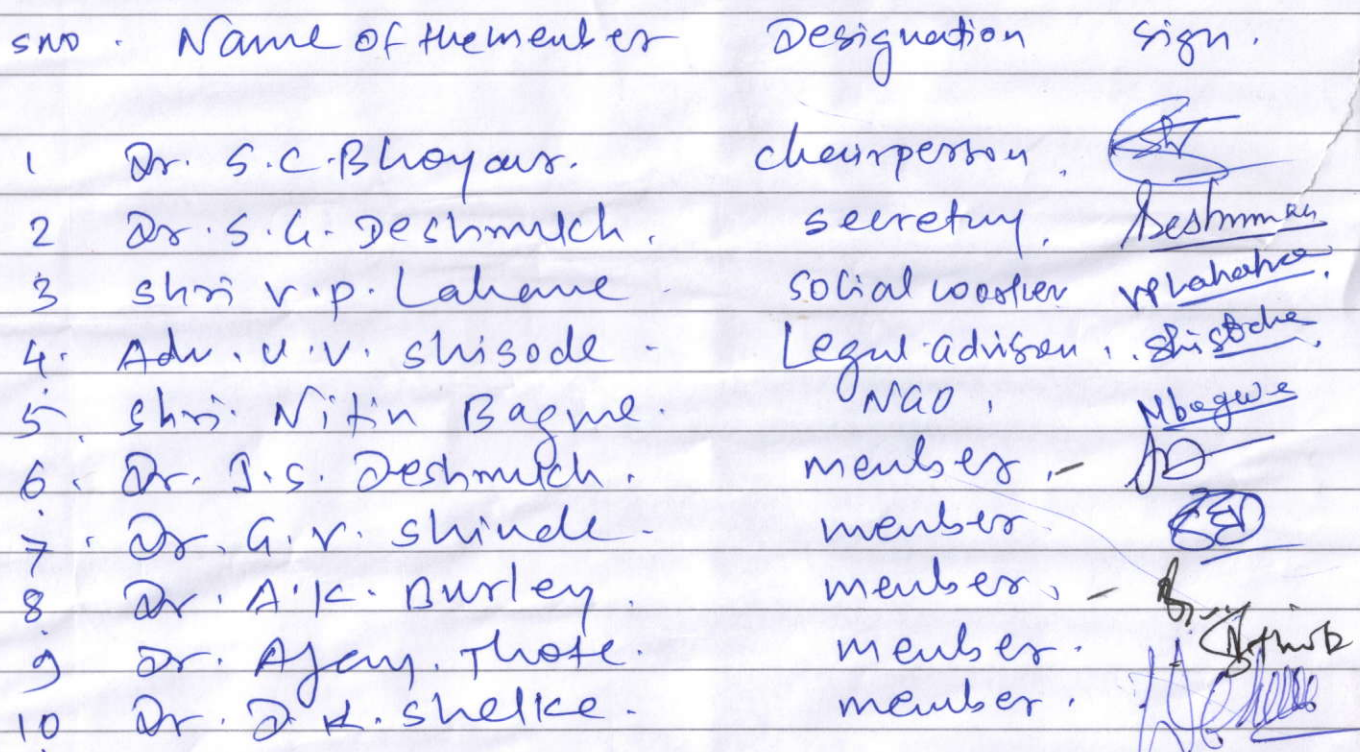 SNO. Name of the member Designation Sign.
1 Dr. S.C. Bhoyar. chairperson.
2 Dr. S. G. Deshmukh. secretary. Deshmukh
3 Shri V.P. Lahane Social worker VPLahane
4. Adv. U.V. Shisode. Legal advisor. Shisode
5 Shri. Nitin Bagwe. NGO. Nbagwe
6. Dr. J.S. Deshmukh. member.
7. Dr. G.V. Shinde member
8 Dr. A.K. Burley. member.
9 Dr. Ajay. Thote. member.
10 Dr. D.K. Shelke. member.